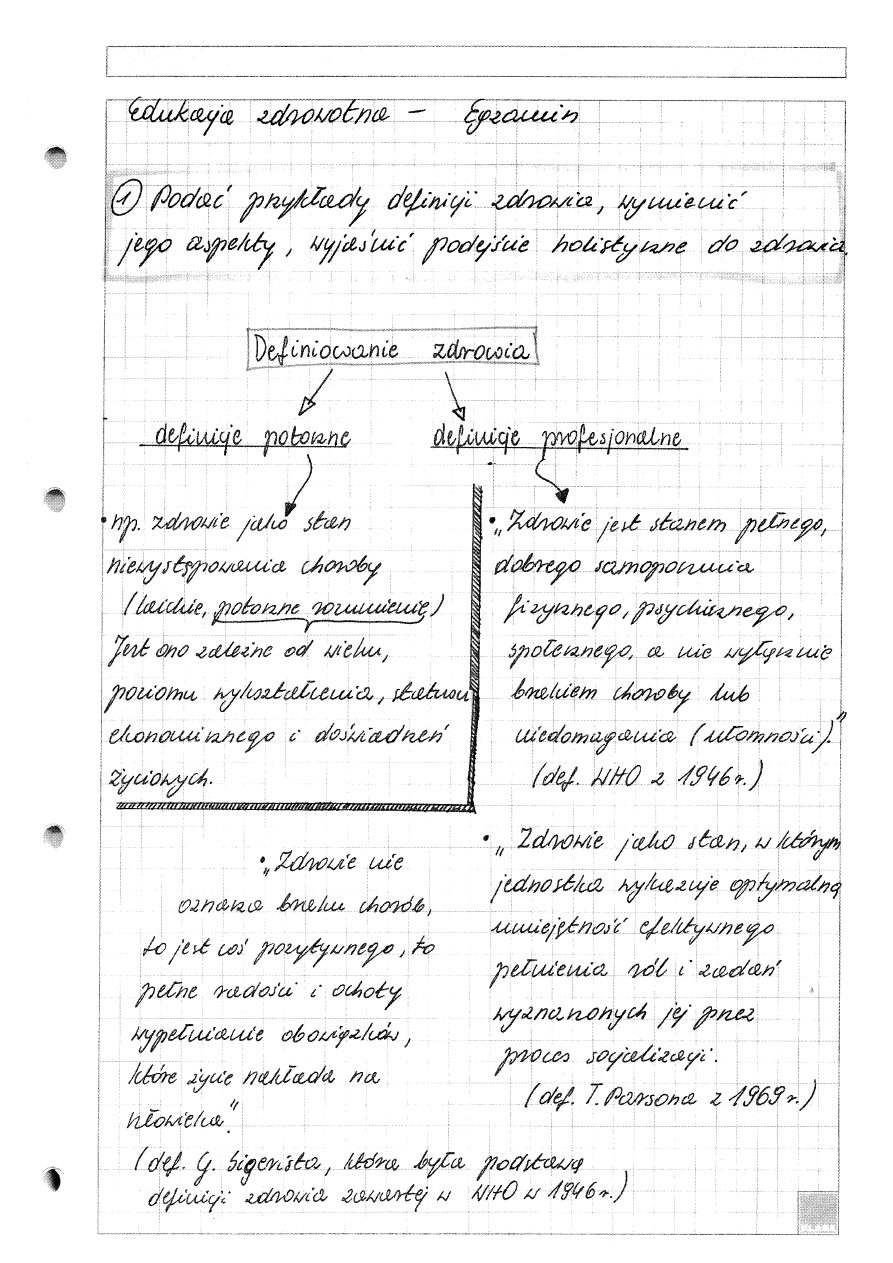 Edukacja zdrowotna – Egzamin
① Podać przykłady definicji zdrowia, wymienić
jego aspekty, wyjaśnić podejście holistyczne do zdrowia.
Definiowanie zdrowia
definicje potoczne
definicje profesjonalne
• np. zdrowie jako stan
niewystępowania choroby
(laickie, potoczne rozumienie)
Jest ono zależne od wieku,
poziomu wykształcenia, statusu
ekonomicznego i doświadczeń
życiowych.
• „Zdrowie jest stanem pełnego,
dobrego samopoczucia
fizycznego, psychicznego,
społecznego, a nie wyłącznie
brakiem choroby lub
niedomagania (ułomności)."
(def. WHO z 1946 r.)
• „Zdrowie nie
oznacza braku chorób,
to jest coś pozytywnego, to
pełne radości i ochoty
wypełnianie obowiązków,
które życie nakłada na
człowieka".
(def. G. Sigerista, która była podstawą
definicji zdrowia zawartej w WHO w 1946 r.)
• „Zdrowie jako stan, w którym
jednostka wykazuje optymalną
umiejętność efektywnego
pełnienia ról i zadań
wyznaczonych jej przez
proces socjalizacji.
(def. T. Parsona z 1969 r.)